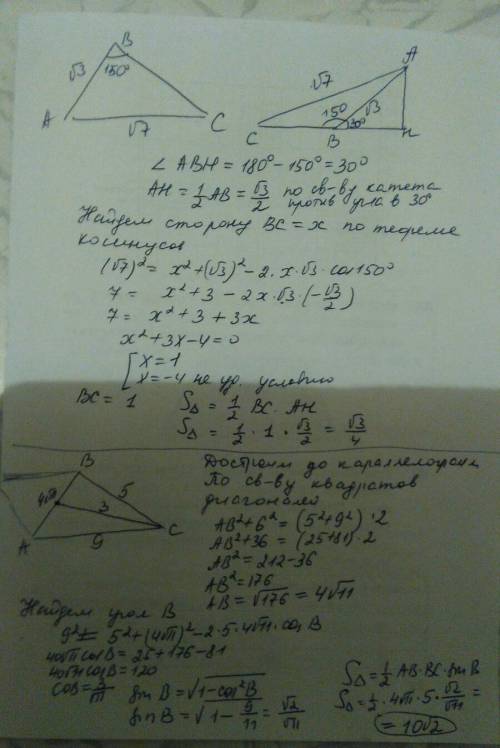 B
√3
150°
A
√7
C
A
√7
150
√3
30°
C
B
H
∠ ABH = 180° - 150° = 30°
AH = 1/2 AB = √3/2 по св-ву катета
против угла в 30°
Найдем сторону BC = x по теореме
косинусов
(√7)² = x² + (√3)² - 2·x·√3·cos150°
7 = x² + 3 - 2x·√3·(-√3/2)
7 = x² + 3 + 3x
x² + 3x - 4 = 0
[ x = 1
x = -4 не уд. условию
BC = 1
S△ = 1/2 BC·AH
S△ = 1/2 · 1 · √3/2 = √3/4
B
4√11
5
3
A
9
C
Достроим до параллелограм
По св-ву квадратов
диагоналей
AB² + 6² = (5² + 9²)·2
AB² + 36 = (25+81)·2
AB² = 212 - 36
AB² = 176
AB = √176 = 4√11
Найдем угол B
9² = 5² + (4√11)² - 2·5·4√11·cos B
40√11 cosB = 25 + 176 - 81
40√11 cosB = 120
cosB = 3/√11
sin B = √1-cos²B
sin B = √1 - 9/11 = √2/√11
S△ = 1/2 AB·BC·sin B
S△ = 1/2 · 4√11 · 5 · √2/√11 =
= 10√2